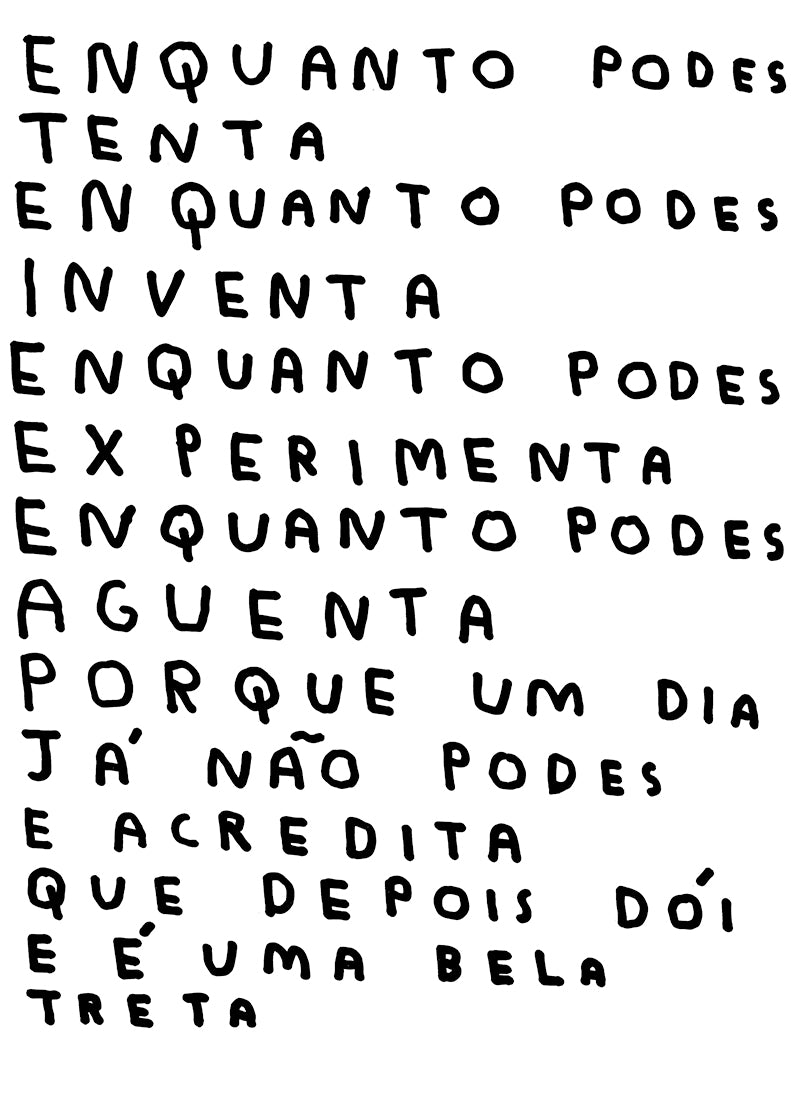 ENQUANTO PODES
TENTA
ENQUANTO PODES
INVENTA
ENQUANTO PODES
EXPERIMENTA
ENQUANTO PODES
AGUENTA
PORQUE UM DIA
JÁ NÃO PODES
E ACREDITA
QUE DEPOIS DÓI
E É UMA BELA
TRETA